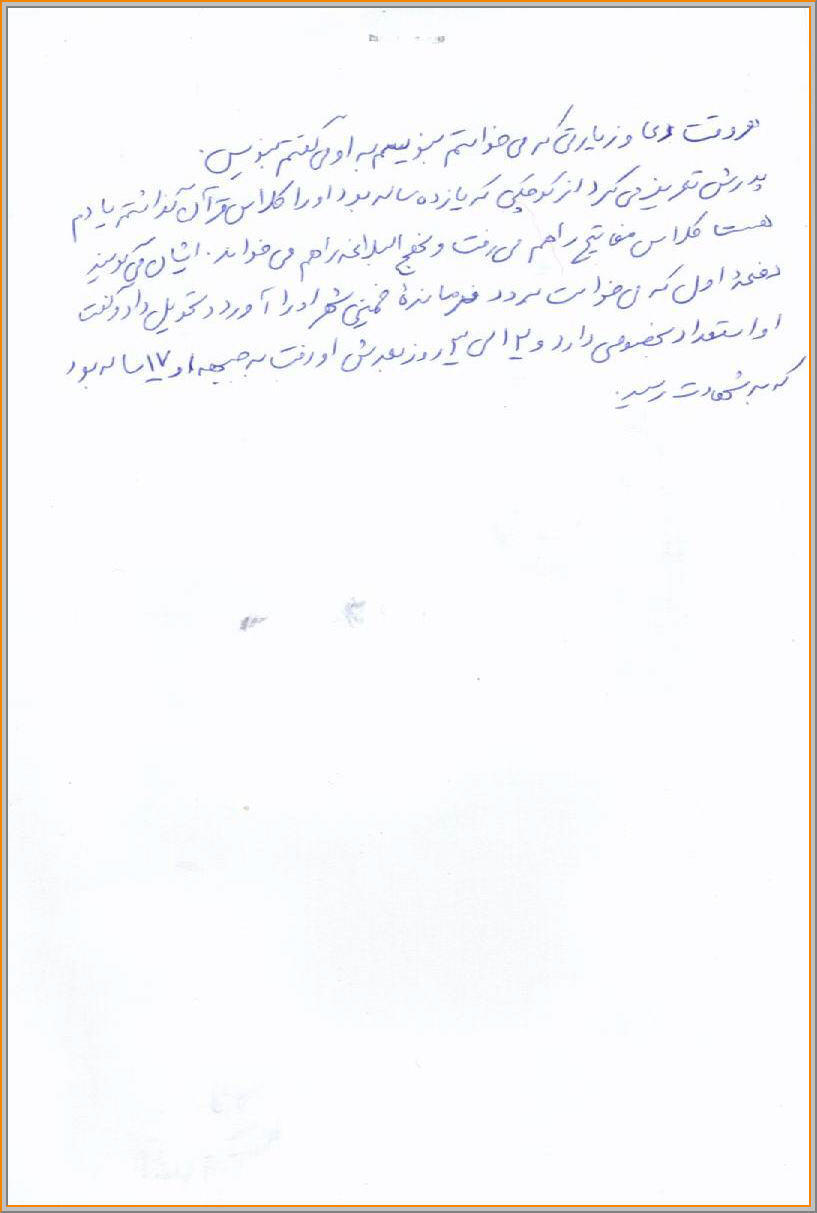 هروقت دعا و زیارتی که می خواستم بنویسم به او می گفتم بنویس.
پدرش تعریف می کرد از کوچکی که یازده ساله بود او را کلاس قرآن گذاشتم یادم
هست کلاس مفاتیح را هم می رفت و نهج البلاغه را هم می خواند. ایشان می گویند
دفعهٔ اول که می خواست برود فرماندهٔ خمینی شهر او را آورد و تحویل داد و گفت
او استعداد بخصوصی دارد و ۱۲ الی ۱۳ روز بعدش او رفت به جبهه او ۱۷ ساله بود
که به شهادت رسید.